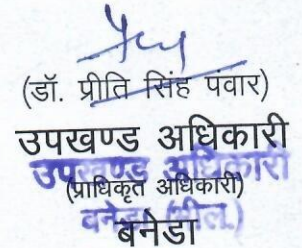 (डॉ. प्रीति सिंह पंवार)
उपखण्ड अधिकारी
उपखण्ड अधिकारी
(प्राधिकृत अधिकारी)
बनेड़ा (भील.)
बनेडा